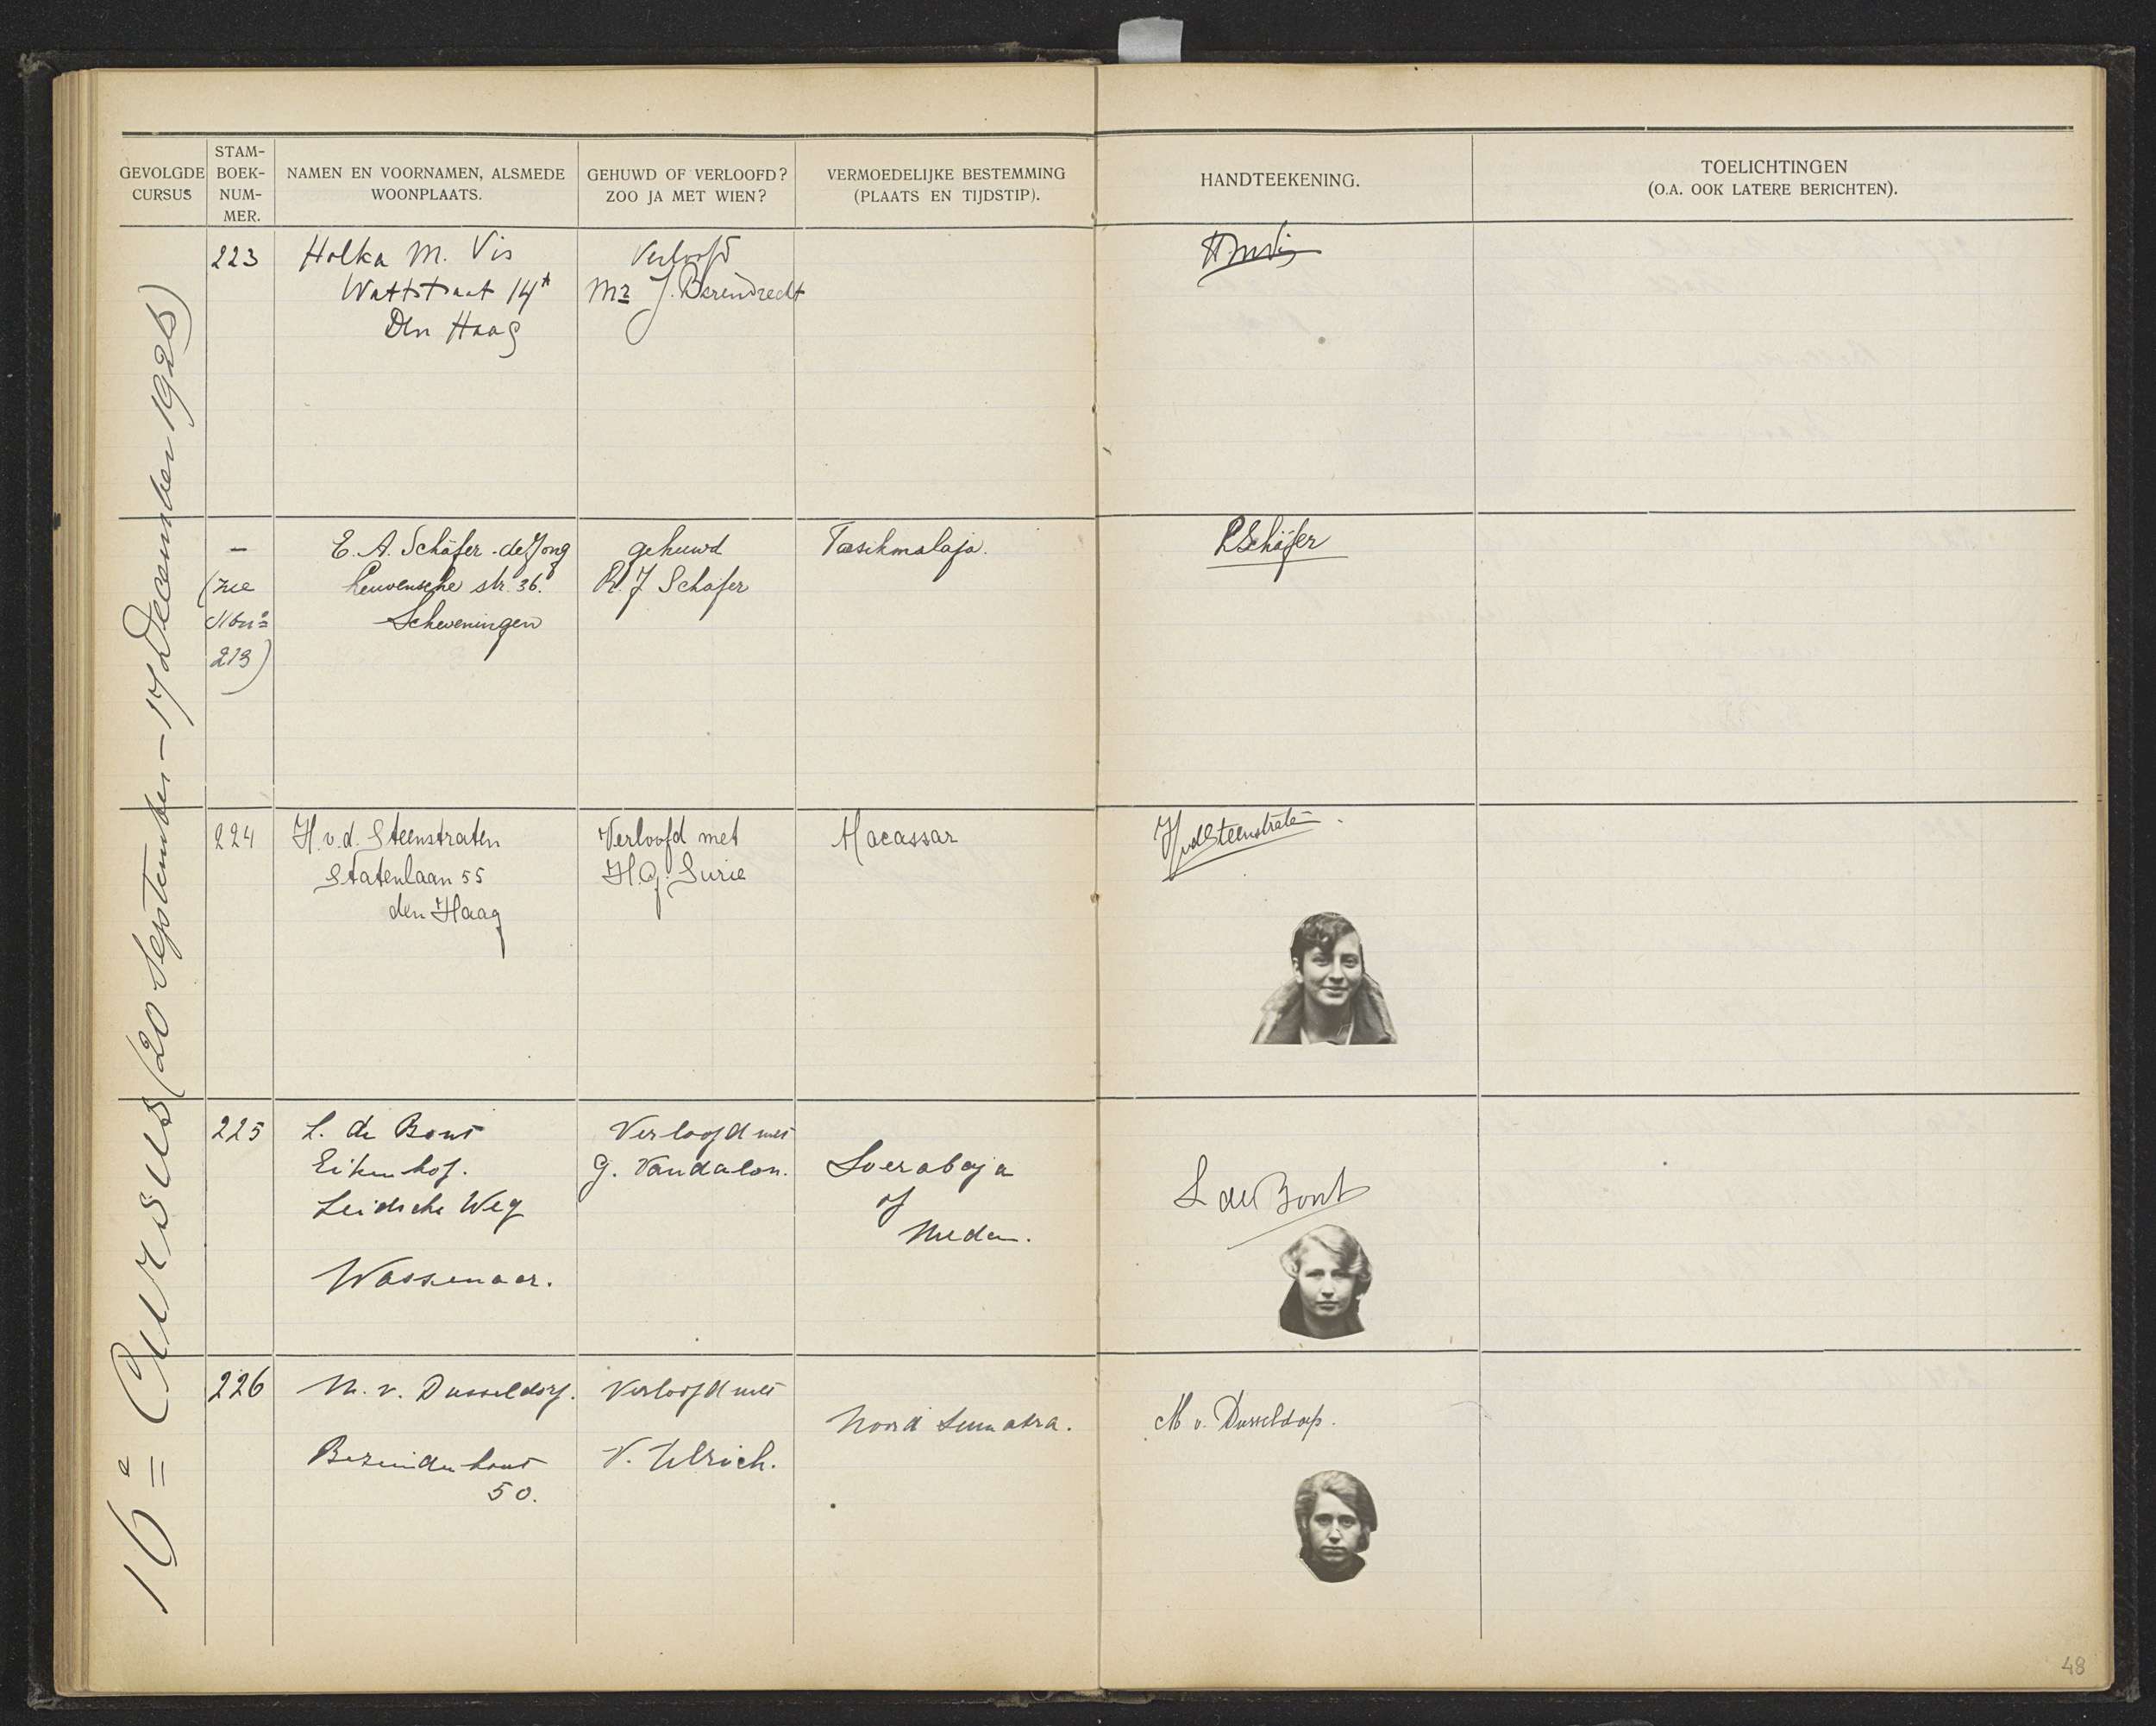 GEVOLGDE
CURSUS
STAM-
BOEK-
NUM-
MER.
NAMEN EN VOORNAMEN, ALSMEDE
WOONPLAATS.
GEHUWD OF VERLOOFD?
ZOO JA MET WIEN?
VERMOEDELIJKE BESTEMMING
(PLAATS EN TIJDSTIP).
HANDTEEKENING.
TOELICHTINGEN
(O.A. OOK LATERE BERICHTEN).
16e Cursus (20 September – 17 December 1926)
223
Holka M. Vis
Wattstraat 14a
Den Haag
Verloofd
Mr J. Barendrecht
HMVis
–
(zie
No
213)
E. A. Schäfer-de Jong
Leuvensche str. 36.
Scheveningen
gehuwd
R. J Schafer
Tasikmalaja.
RSchäfer
224
H. v. d. Steenstraten
Statenlaan 55
den Haag
Verloofd met
H. J. Surie
Macassar
HvdSteenstraten
225
L. de Bont
Eikenhof.
Leidsche Weg
Wassenaar.
Verloofd met
G. Vandalon.
Soerabaja
of
Medan.
L de Bont
226
M. v. Dusseldorp.
Bezuidenhout
50.
Verloofd met
V. Ulrich.
Noord Sumatra.
M v. Dusseldorp.
48